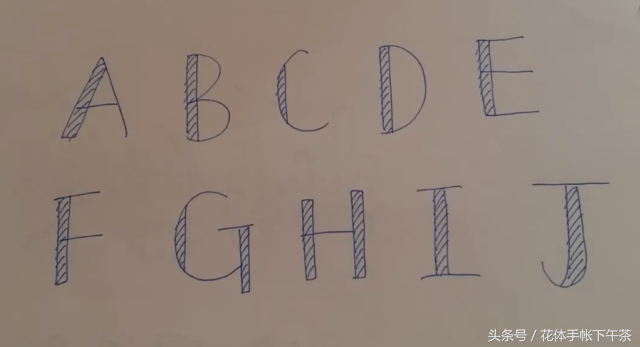 A B C D E
F G H I J
头条号 / 花体手帐下午茶